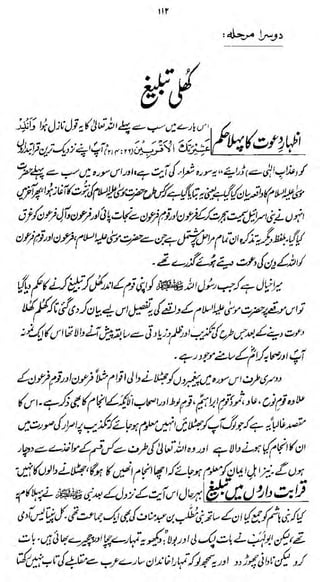 ۱۱۲
دوسرا مرحلہ:
کھلی تبلیغ
اظہارِ دعوت کا پہلا حکم
اس بارے میں سب سے پہلے اللہ تعالیٰ کا یہ قول نازل ہوا وَأَنذِرْ
عَشِيرَتَكَ الْأَقْرَبِينَ (۲۶:۲۱۴) آپ اپنے نزدیک ترین قرابتداروں
کو (عذابِ الٰہی سے) ڈرائیے۔ یہ سورہ شعراء کی آیت ہے اور اس سورہ میں سب سے پہلے حضرت
موسیٰ علیہ السلام کا واقعہ بیان کیا گیا ہے یعنی یہ بتایا گیا ہے کہ کس طرح حضرت موسیٰ علیہ السلام کی نبوت کا آغاز ہوا پھر آخر میں
انہوں نے بنی اسرائیل سمیت ہجرت کرکے فرعون اور قومِ فرعون سے نجات پائی اور فرعون و آلِ فرعون کو غرق
کیا گیا۔ بلفظ دیگر یہ تذکرہ ان تمام مراحل پر مشتمل ہے جن سے حضرت موسیٰ علیہ السلام، فرعون اور قومِ فرعون
کو اللہ کے دین کی دعوت دیتے ہوئے گذرے تھے۔
میرا خیال ہے کہ جب رسول اللہ ﷺ کو اپنی قوم کے اندر کھل کر تبلیغ کرنے کا حکم دیا گیا
تو اس موقعے پر حضرت موسیٰ علیہ السلام کے واقعے کی یہ تفصیل اس لیے بیان کر دی گئی تاکہ کھلم کھلا
دعوت دینے کے بعد جس طرح کی تکذیب اور ظلم و زیادتی سے سابقہ پیش آنے والا تھا اس کا ایک نمونہ
آپ اور صحابہ کرامؓ کے سامنے موجود رہے۔
دوسری طرف اس سورہ میں پیغمبروں کو جھٹلانے والی اقوام مثلاً فرعون اور قومِ فرعون کے
علاوہ قومِ نوحؑ، عاد، ثمود، قومِ ابراہیمؑ، قومِ لوط اور اصحاب الأیکہ کے انجام کا بھی ذکر ہے۔ اس کا
مقصد غالباً یہ ہے کہ جو لوگ آپ کو جھٹلائیں انہیں معلوم ہو جائے کہ تکذیب پر اصرار کی صورت میں
ان کا انجام کیا ہونے والا ہے اور وہ اللہ تعالیٰ کی طرف سے کس قسم کے مواخذے سے دوچار
ہوں گے۔ نیز اہلِ ایمان کو معلوم ہو جائے کہ اچھا انجام انھیں کا ہوگا، جھٹلانے والوں کا نہیں۔
قرابت داروں میں تبلیغ
بہرحال اس آیت کے نزول کے بعد نبی ﷺ نے پہلا کام یہ
کیا کہ بنی ہاشم کو جمع کیا ان کے ساتھ بنی مطلب بن عبد مناف کی بھی ایک جماعت تھی۔ کل پینتالیس آدمی
تھے۔ لیکن ابو لہب نے بات لپک لی اور بولا: "دیکھو یہ تمہارے چچا اور چچیرے بھائی ہیں۔ بات
کرو لیکن نادانی چھوڑ دو اور یہ سمجھ لو کہ تمہارا خاندان سارے عرب سے مقابلے کی تاب نہیں رکھتا